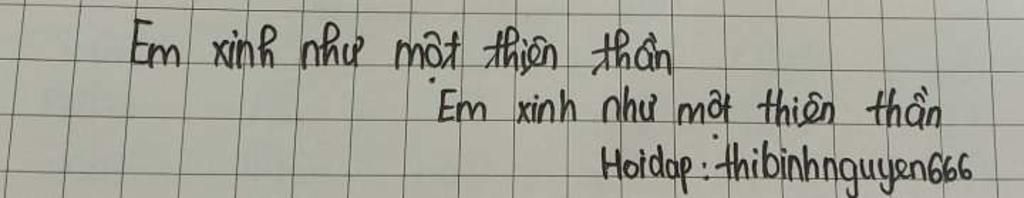 Em xinh như một thiên thần
Em xinh như một thiên thần
Hoidap: thibinhnguyen666